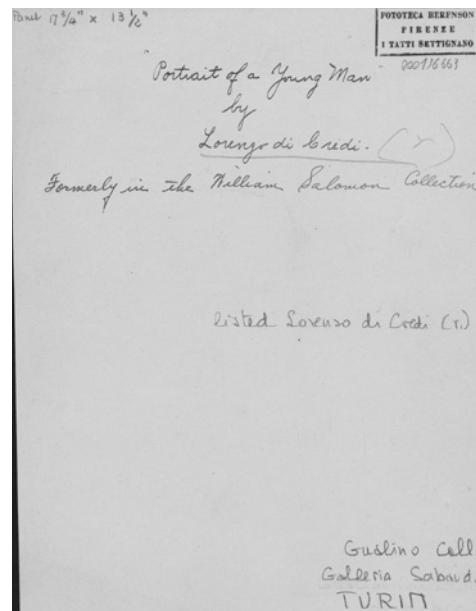 Panel 17 3/4" x 13 1/2"
FOTOTECA BERENSON
FIRENZE
I TATTI SETTIGNANO
Portrait of a Young Man
by
Lorenzo di Credi. (r)
Formerly in the William Salomon Collection
listed Lorenzo di Credi (r.)
Gualino Coll
Galleria Sabaud.
TURIN